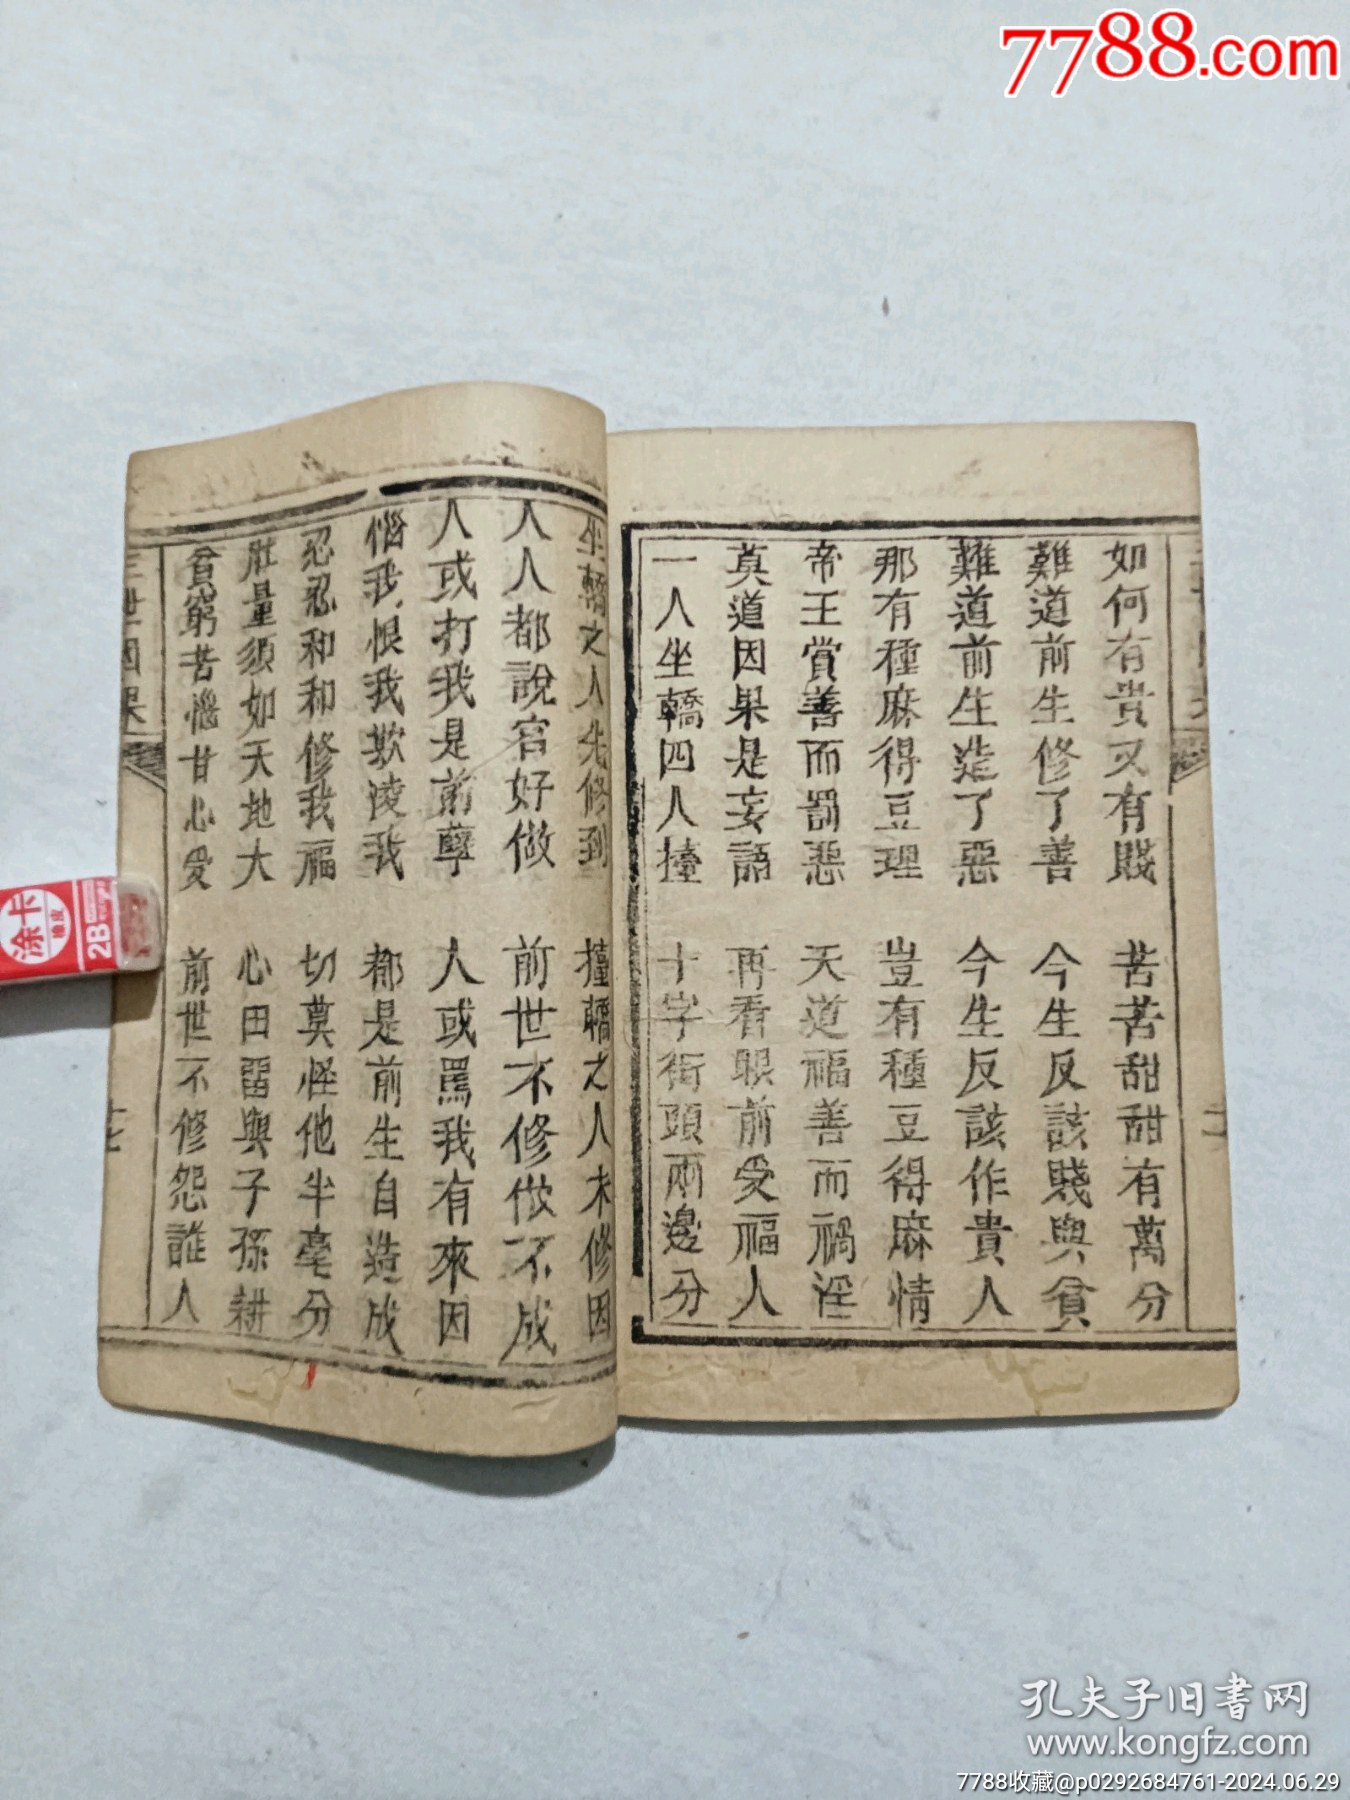 7788.com
如何有貴又有賤 苦苦甜甜有萬分
難道前生修了善 今生反該賤與貧
難道前生造了惡 今生反該作貴人
那有種麻得豆理 豈有種豆得麻情
帝王賞善而罰惡 天道福善而禍淫
莫道因果是妄語 再看眼前受福人
一人坐轎四人擡 十字街頭兩邊分
坐轎之人先修到 擡轎之人未修因
人人都說官好做 前世不修做不成
人或打我是前孽 人或罵我有來因
惱我恨我欺凌我 都是前生自造成
忍忍和和修我福 切莫怪他半毫分
肚量須如天地大 心田留與子孫耕
貧窮苦惱甘心受 前世不修怨誰人
三世因果
涂卡
橡皮
2B
孔夫子旧書网
www.kongfz.com
7788收藏@p0292684761-2024.06.29